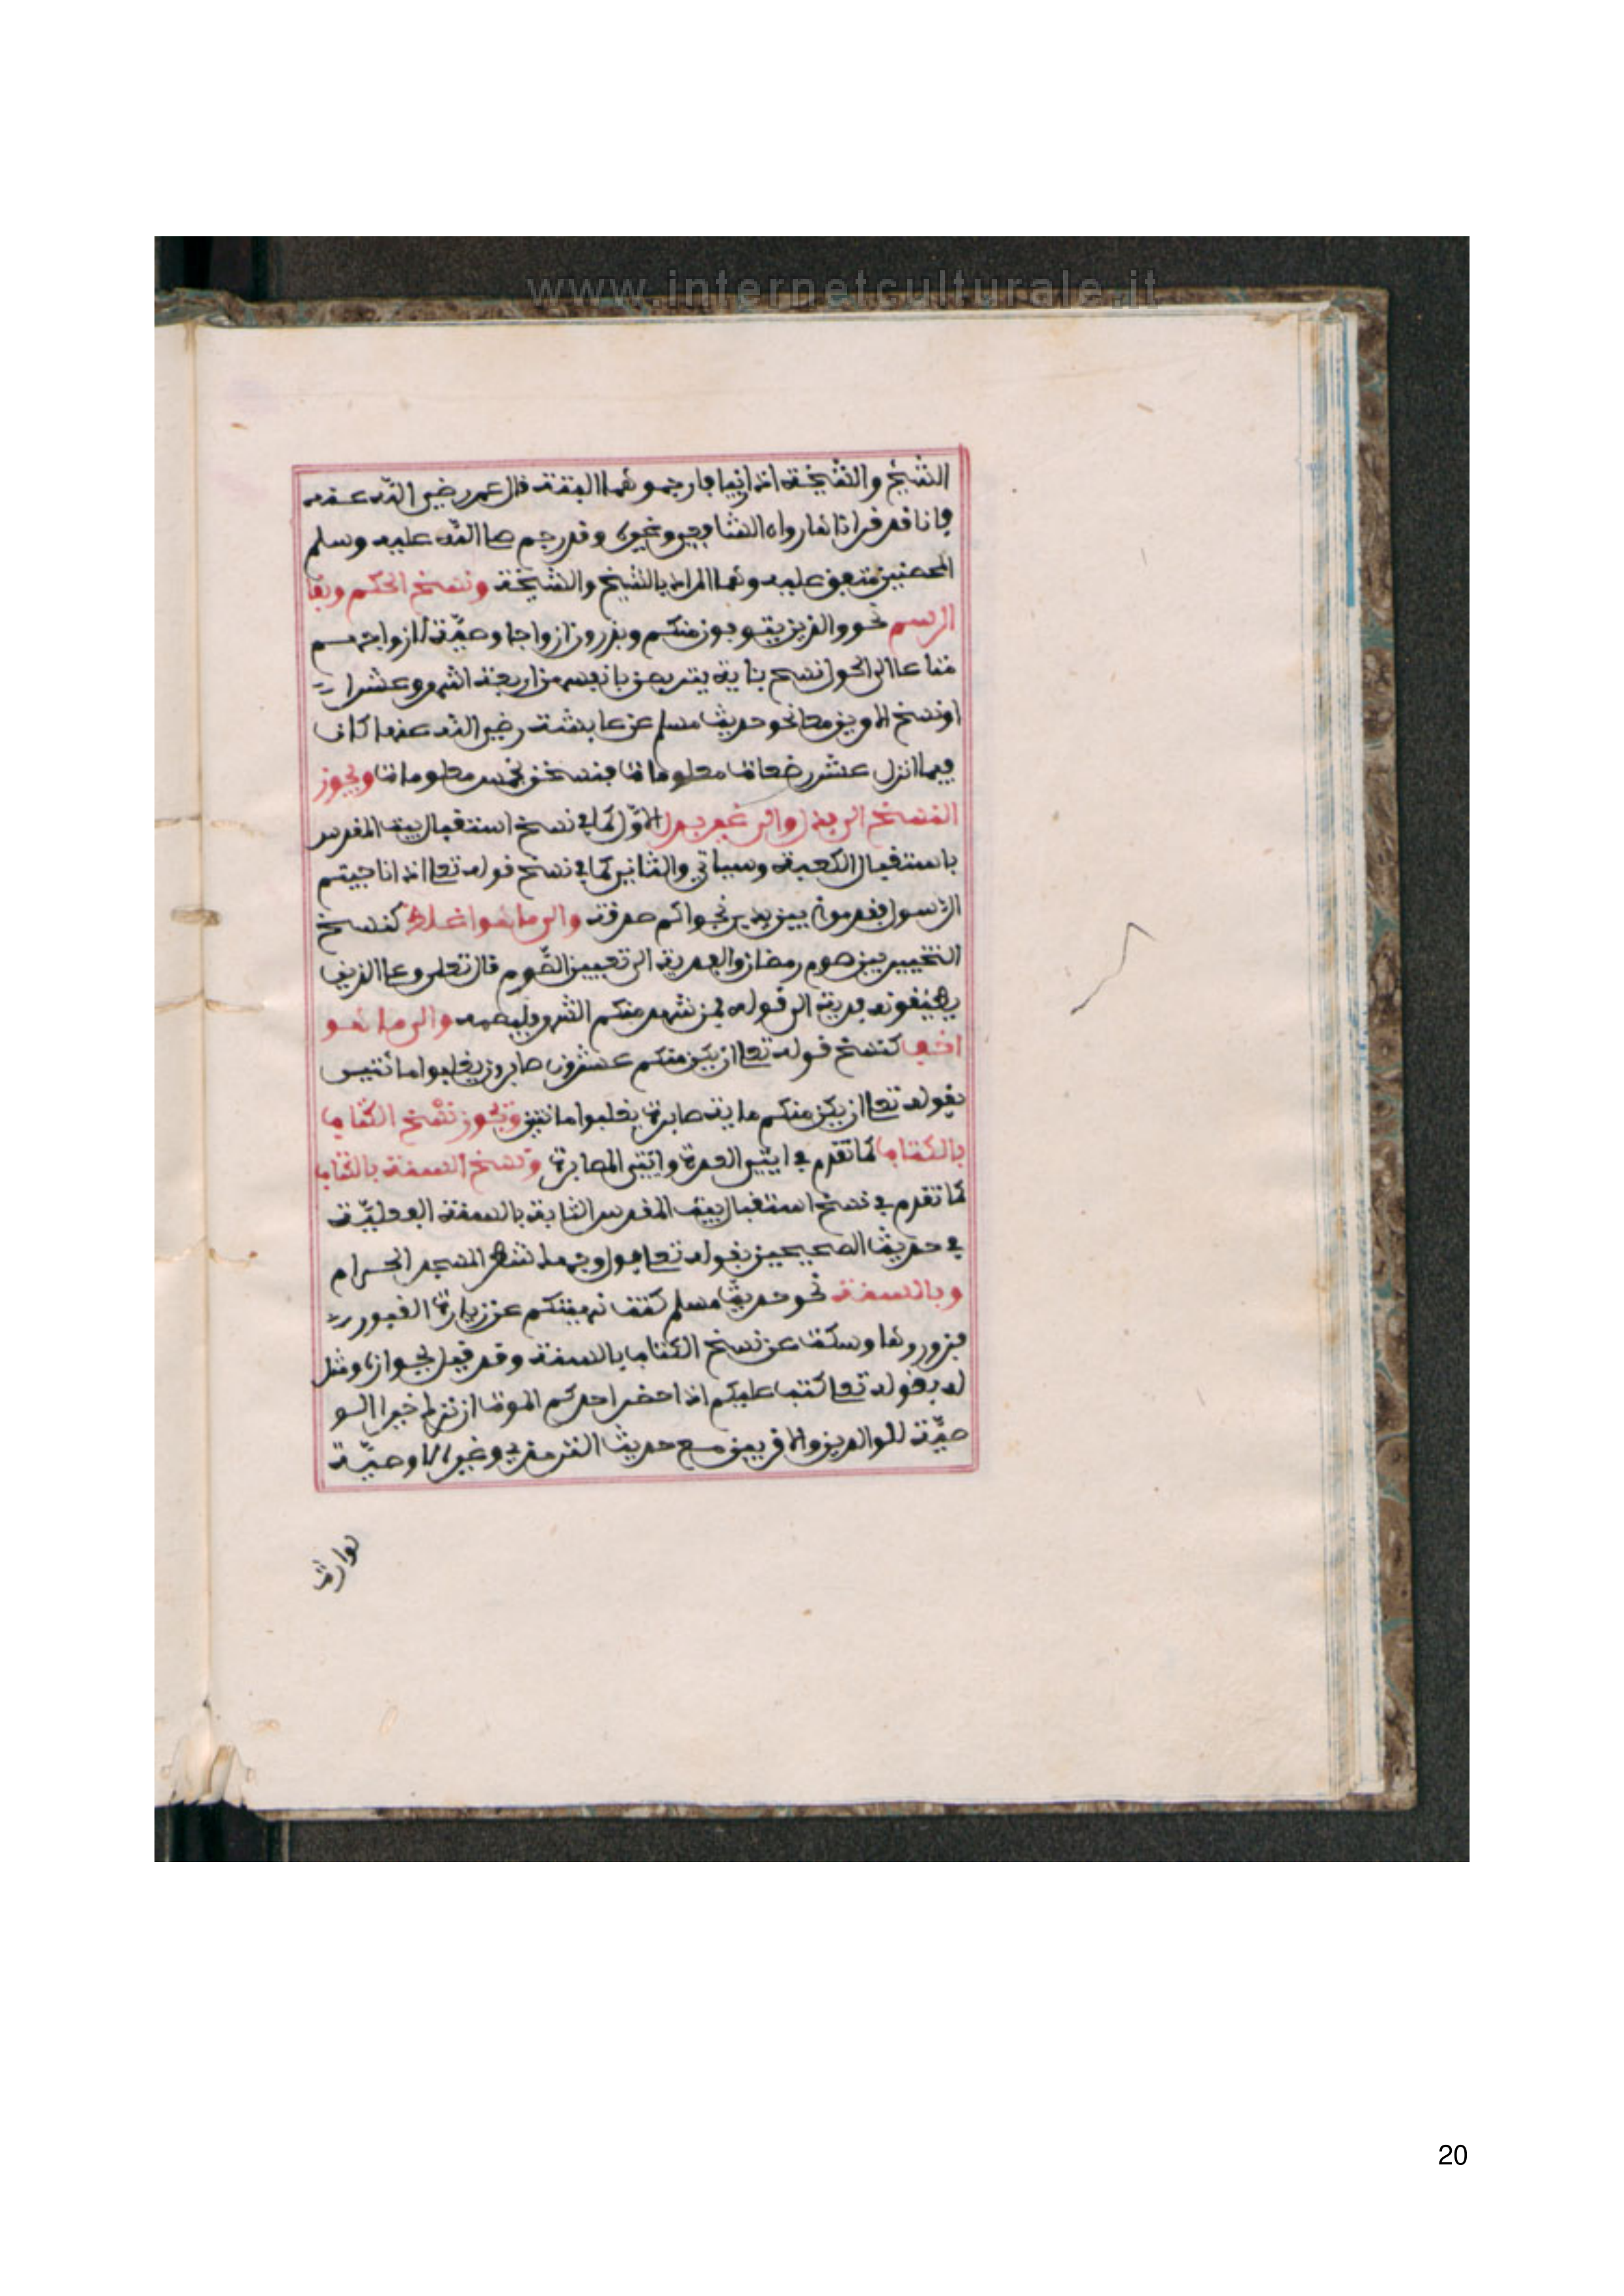 www.internetculturale.it
الشيخ والشيخة اذا زنيا فارجموهما البتة قال عمر رضي الله عنه
فانا قد قراناها رواه الشافعي وغيره وقد رجم صلى الله عليه وسلم
المحصنين متفق عليه وهما المراد بالشيخ والشيخة ونسخ الحكم وبقا
الرسم نحو والذين يتوفون منكم ويذرون ازواجا وصيّة لازواجهم
متاعا الى الحول نسخ بئاية يتربصن بانفسهن اربعة اشهر وعشرا
او نسخ الامرين معا نحو حديث مسلم عن عايشة رضي الله عنها كان
فيما انزل عشر رضعات معلومات فنسخن بخمس معلومات ويجوز
النسخ الى بدل والى غير بدل الاوّل كما في نسخ استقبال بيت المقدس
باستقبال الكعبة وسياتي والثاني كما في نسخ قوله تعلى اذا ناجيتم
الرسول فقدموا بين يدي نجواكم صدقة والى ما هو اغلظ كنسخ
التخيير بين صوم رمضان والفدية الى تعيين الصّوم قال تعلى وعلى الذين
يطيقونه فدية الى قوله فمن شهد منكم الشهر فليصمه والى ما هو
اخف كنسخ قوله تعلى ان يكن منكم عشرون صابرون يغلبوا مائتين
بقوله تعلى ان يكن منكم ماية صابرة يغلبوا مائتين ويجوز نسخ الكتاب
بالكتاب كما تقدم في ايتي العدة وايتي المصابرة ونسخ السنة بالكتاب
كما تقدم في نسخ استقبال بيت المقدس الثابتة بالسنة الفعليّة
في حديث الصحيحين بقوله تعلى فول وجهك شطر المسجد الحرام
وبالسنة نحو حديث مسلم كنت نهيتكم عن زيارة القبور
فزوروها وسكت عن نسخ الكتاب بالسنة وقد قيل بجوازه ومثل
له بقوله تعلى كتب عليكم اذا حضر احدكم الموت ان ترك خيرا الو
صيّة للوالدين والاقربين مع حديث الترمذي وغيره لا وصيّة
لوارث
20